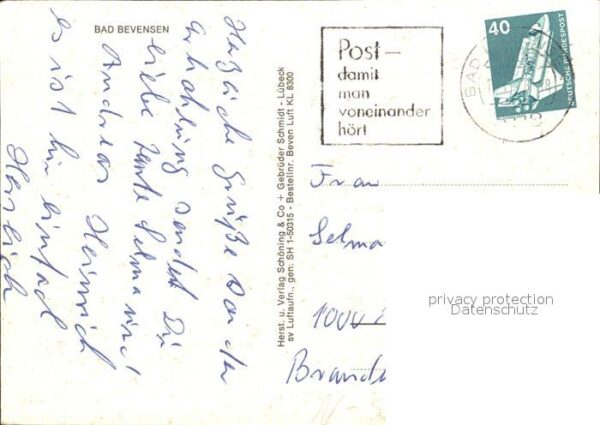 BAD BEVENSEN
Herzliche Grüße von der
Erholung sendet Dir
liebe Tante Selma und
Andreas Heinrich
es ist hier einfach
Herrlich
Herst. u. Verlag Schöning & Co + Gebrüder Schmidt - Lübeck
sv Luftaufn., gen: SH 1-50315 - Bestellnr. Beven Luft KL 8300
Post-
damit
man
voneinander
hört
40
DEUTSCHE BUNDESPOST
BAD
Frau
Selma
1000
Brande
privacy protection
Datenschutz